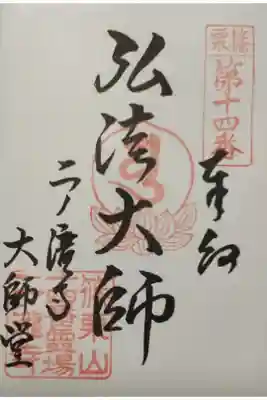 篠栗
第十四番
奉納
弘法大師
二ノ滝寺
大師堂